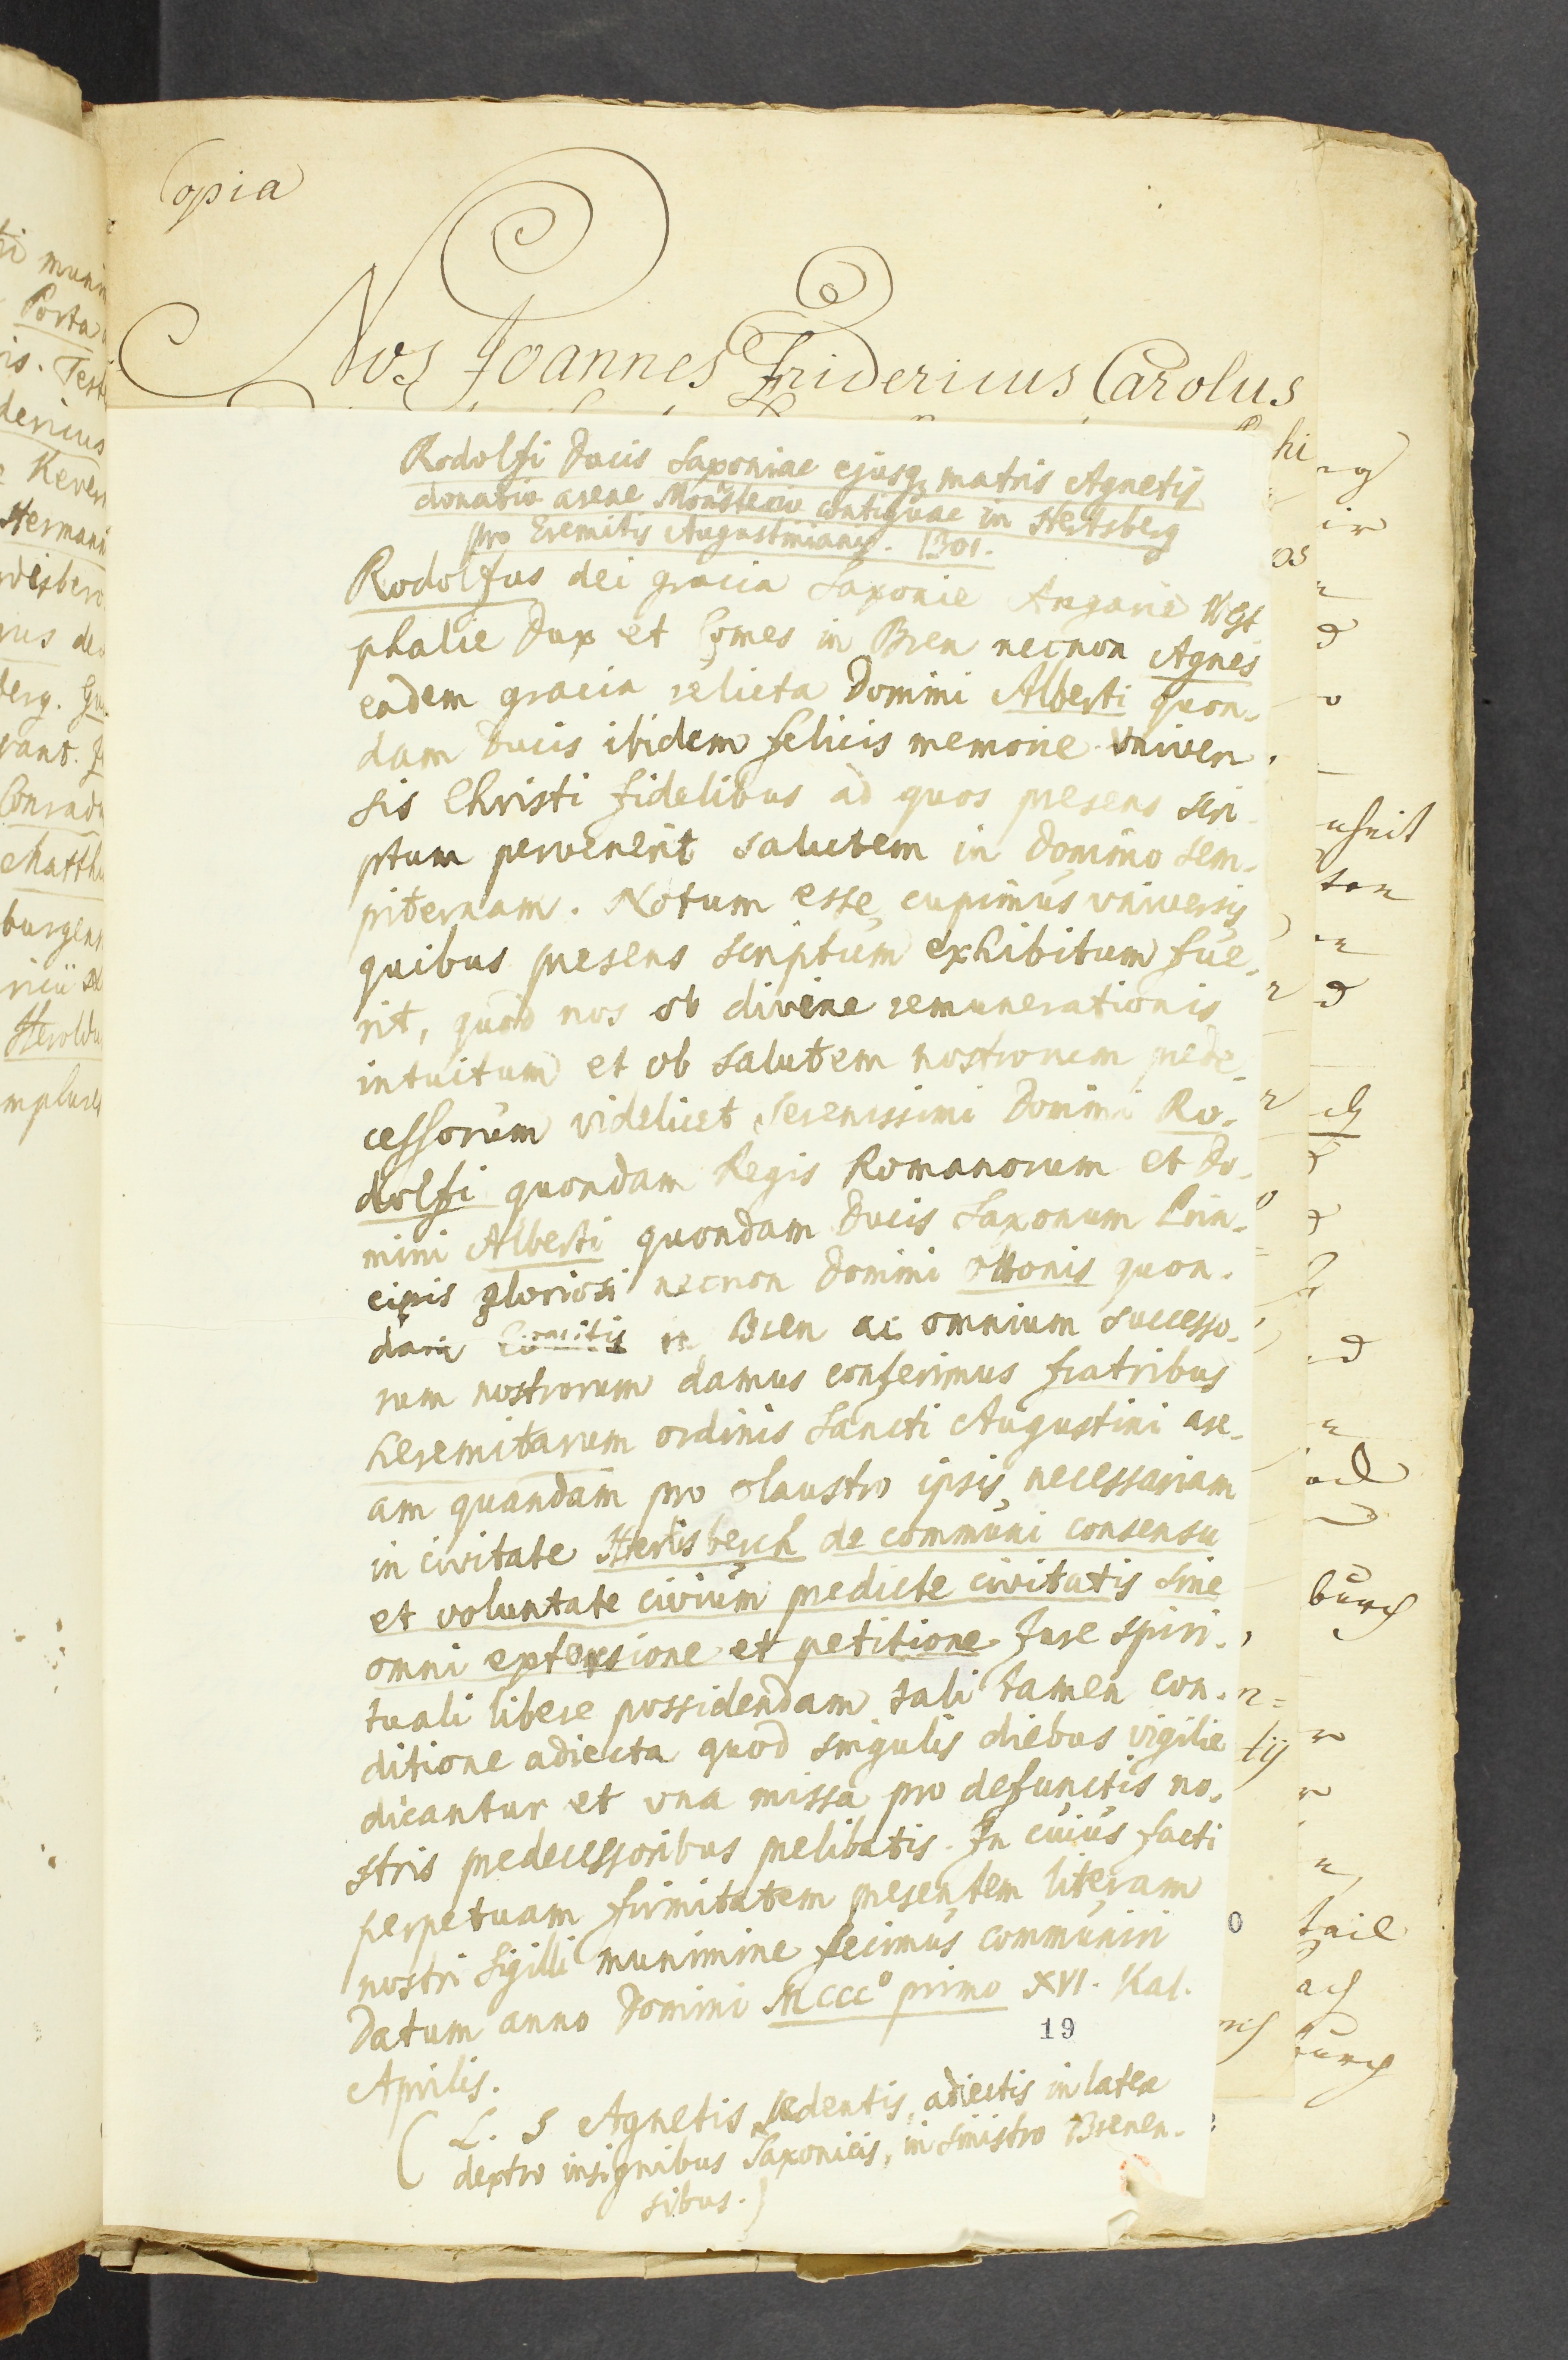 Copia
Nos Joannes Fridericus Carolus
Rodolfi Ducis Saxoniae ejusq; matris Agnetis
donatio areae Monasterio contiguae in Hertsberg
pro Eremitis Augustinianis. 1301.
Rodolfus dei gracia Saxonie Angarie West
phalie Dux et Comes in Bren necnon Agnes
eadem gracia relicta Domini Alberti quon-
dam Ducis ibidem felicis memorie vniver
sis Christi fidelibus ad quos presens scri-
ptum pervenerit salutem in Domino sem-
piternam. Notum esse cupimus vniversis
quibus presens scriptum exhibitum fue-
rit, quod nos ob divine remunerationis
intuitum et ob salutem nostrorum prede-
cessorum videlicet Serenissimi Domini Ro-
dolfi quondam Regis Romanorum et Do-
mini Alberti quondam Ducis Saxonum Prin-
cipis gloriosi necnon Domini Ottonis quon-
dam Comitis in Bren ac omnium successo-
rum nostrorum damus conferimus fratribus
heremitarum ordinis Sancti Augustini are-
am quandam pro claustro ipsis necessariam
in civitate Hertisberch de communi consensu
et voluntate civium predicte civitatis sine
omni extorsione et petitione Jure spiri-
tuali libere possidendam tali tamen con-
ditione adiecta quod singulis diebus vigilie
dicantur et vna missa pro defunctis no-
stris predecessoribus prelibatis. In cuius facti
perpetuam firmitatem presentem literam
nostri Sigilli munimine fecimus communiri
Datum anno Domini MCCC° primo XVI. Kal.
Aprilis.
19
( L. S Agnetis sedentis, adiectis in latere
dextro insignibus Saxonicis, in sinistro Brenen-
sibus.)